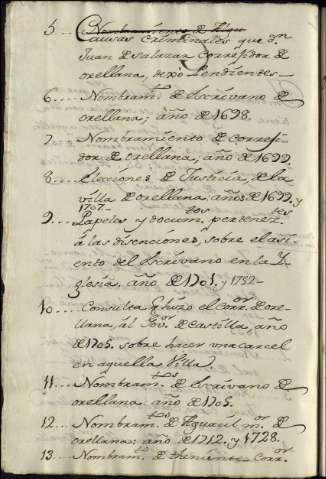 5.... Nombramientos de Alguа
Causas criminales que Dn.
Juan de Salazar Corregidor de
orellana, dexo Pendientes-
6.... Nombram.to de Escrivano de
orellana; año de 1698.
7... Nombramiento de Correji-
dor de orellana, año de 1699.
8... Elecciones de Justicia, de la
villa de orellana, años de 1699. y
1707.
9... Papeles y docum.tos pertenec.tes
á las disenciones, sobre el asi-
ento del Escrivano en la Y-
glesia. año de 1701. y 1752-
10... Consulta q. hizo el Corr.or de ore-
llana, ál Gov.or de Castilla, año
de 1705. sobre hacer una carcel
en aquella Villa.
11... Nombram.tos de Escrivano de
orellana: año de 1705.
12... Nombram.tos de Alguacil m.or de
orellana: año de 1712. y 1728.
13... Nombram.to de theniente Corr.or